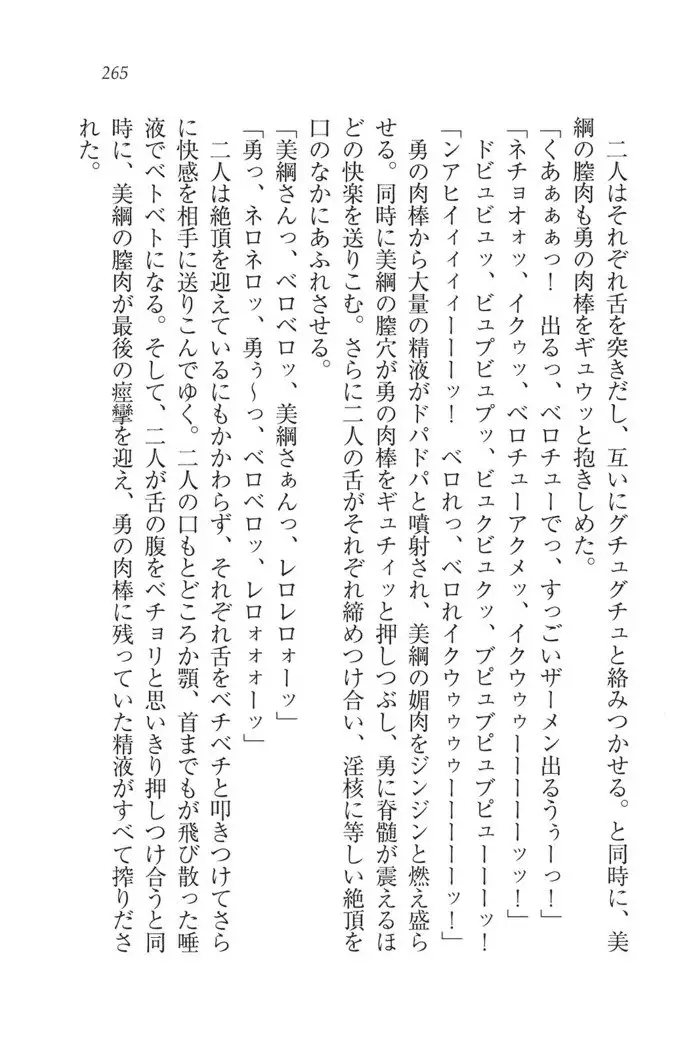 265
二人はそれぞれ舌を突きだし、互いにグチュグチュと絡みつかせる。と同時に、美
綱の膣肉も勇の肉棒をギュウッと抱きしめた。
「くあぁぁぁっ！　出るっ、ベロチューでっ、すっごいザーメン出るうぅーっ！」
「ネチョオォッ、イクゥッ、ベロチューアクメッ、イクウゥゥーーーーッッ！」
ドビュビュッ、ビュプビュプッ、ビュクビュクッ、ブピュブピュブピューーーッ！
「ンアヒイィィィィーーーッ！　ベロれっ、ベロれイクウゥゥゥゥーーーーーッ！」
勇の肉棒から大量の精液がドパドパと噴射され、美綱の媚肉をジンジンと燃え盛ら
せる。同時に美綱の膣穴が勇の肉棒をギュチィッと押しつぶし、勇に脊髄が震えるほ
どの快楽を送りこむ。さらに二人の舌がそれぞれ締めつけ合い、淫核に等しい絶頂を
口のなかにあふれさせる。
「美綱さんっ、ベロベロッ、美綱さぁんっ、レロレロォーッ」
「勇っ、ネロネロッ、勇ぅ〜っ、ベロベロッ、レロォォォーッ」
二人は絶頂を迎えているにもかかわらず、それぞれ舌をベチベチと叩きつけてさら
に快感を相手に送りこんでゆく。二人の口もとどころか顎、首までもが飛び散った唾
液でベトベトになる。そして、二人が舌の腹をベチョリと思いきり押しつけ合うと同
時に、美綱の膣肉が最後の痙攣を迎え、勇の肉棒に残っていた精液がすべて搾りださ
れた。